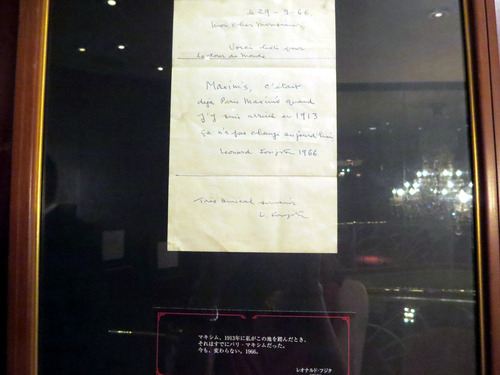 le 29-9-66
Mon cher Monsieur,
Voici pour
Le tour du Monde
Maxim's, c'était
déjà Paris Maxim's quand
j'y suis arrivé en 1913
ça n'a pas changé aujourd'hui
Leonard Foujita 1966
Très
L. Foujita
マキシム、1913年に私がこの地を踏んだとき、
それはすでにパリ・マキシムだった。
今も、変わらない。1966。
レオナルド・フジタ